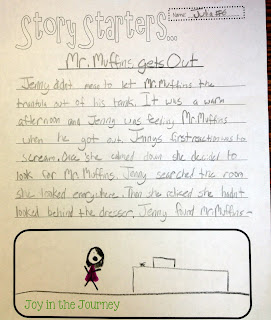 Story Starters...
Name: Julia
Mr. Muffins gets Out
Jenny didn't mean to let Mr. Muffins the
trantula out of his tank. It was a warm
afternoon and Jenny was feeling Mr. Muffins
when he got out. Jennys first reaction was to
scream. Once she calmed down she decided to
look for Mr. Muffins. Jenny searched the room
she looked everywhere. Then she relised she hadn't
looked behind the dresser, Jenny found Mr. Muffins-
Joy in the Journey